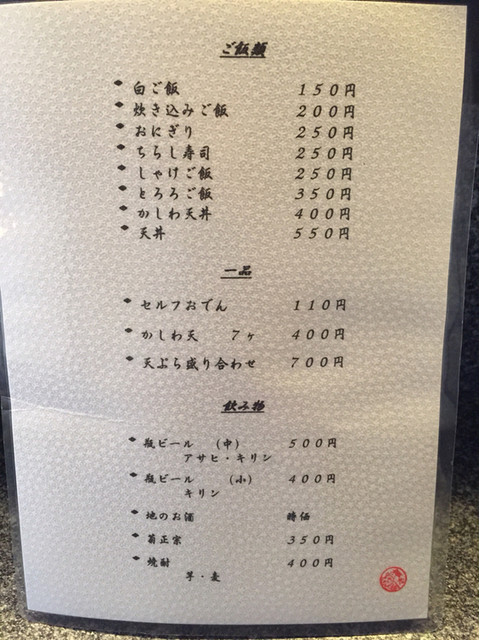 ご飯類
白ご飯 150円
炊き込みご飯 200円
おにぎり 250円
ちらし寿司 250円
しゃけご飯 250円
とろろご飯 350円
かしわ天丼 400円
天丼 550円
一品
セルフおでん 110円
かしわ天 7ヶ 400円
天ぷら盛り合わせ 700円
飲み物
瓶ビール (中) 500円
アサヒ・キリン
瓶ビール (小) 400円
キリン
地のお酒 時価
菊正宗 350円
焼酎 400円
芋・麦